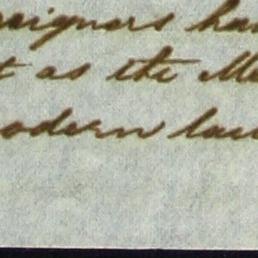 reigners ha
t as the Me
odern law